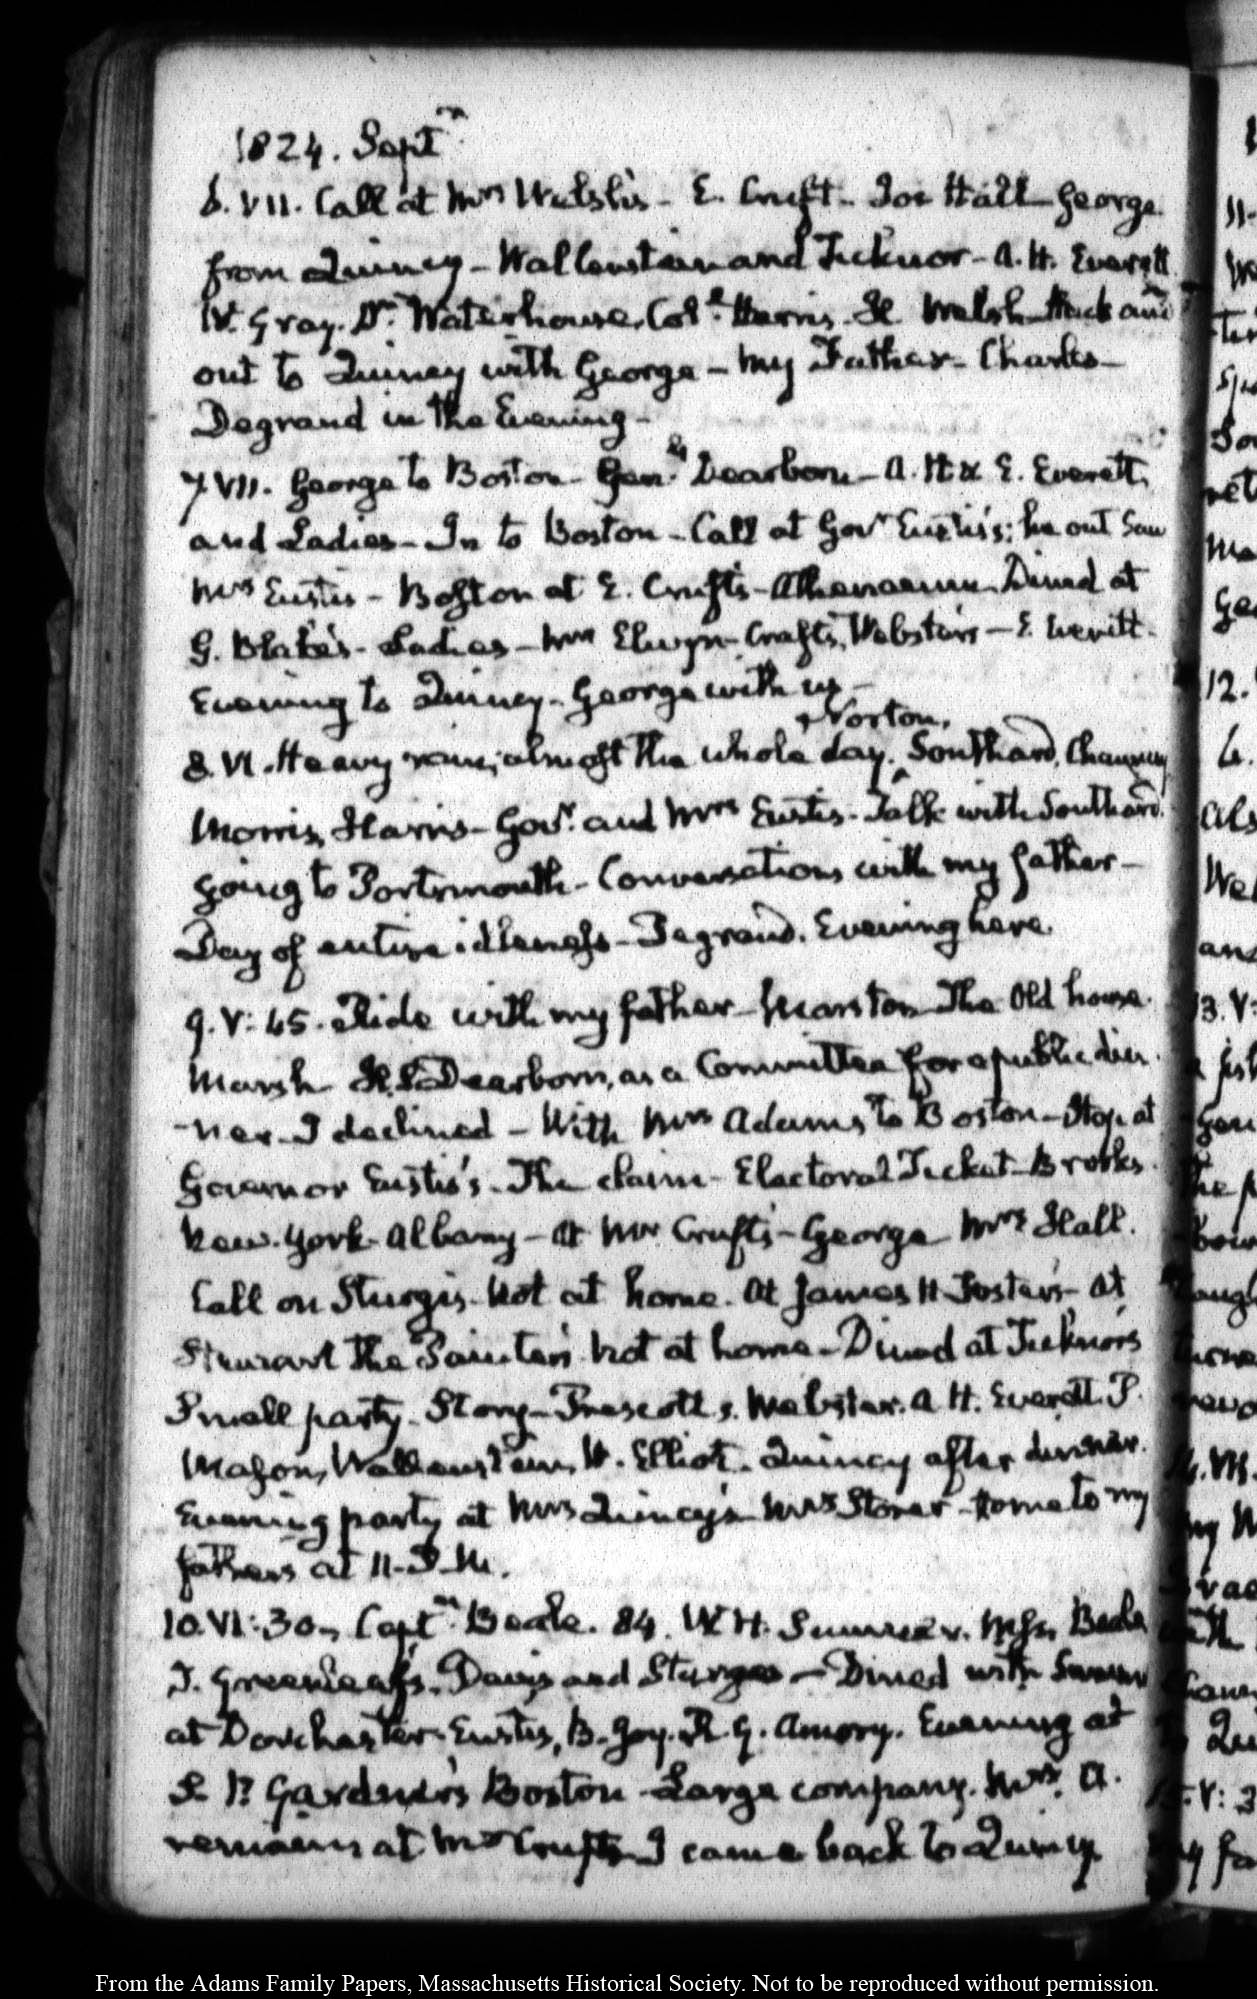 1824. Sept.r
6. VII. Call at Mrs Welsh's – E. Cruft – Hall George
from Quincy – Wallenstein and Ticknor – A. H. Everett
W. Gray. Dr. Waterhouse, Col.l Harris. Welsh. and
out to Quincy with George – my Father – Charles –
Degrand in the Evening –
7. VII. George to Boston – Gen.l Dearborn – A. H & E. Everett,
and Ladies – In to Boston – Call at Gov.r Eustis's; he out Saw
Mrs Eustis – Boston at E. Cruft's – Athenaeum. Dined at
G. Blake's – Ladies – Mrs Elwyn – Crafts, Webster's – E. Everett.
Evening to Quincy – George with us –
+ Norton,
8. VI. Heavy rain, almost the whole day. Southard, Chauncey
Morris, Harris – Gov.r and Mrs Eustis – Talk with Southard.
going to Portsmouth – Conversations with my father –
Day of entire idleness – Degrand. Evening here.
9. V: 45. Ride with my father – Marston The Old house.
Marsh Dearborn, as a Committee for a public din
-ner – I declined – With Mrs Adams to Boston – Stop at
Governor Eustis's – The claim – Electoral Ticket – Brooks.
New-York – Albany – At Mr Cruft's – George Mrs Hall.
Call on Sturgis – Not at home. At James H Foster's – at
Stewart the Painter's not at home – Dined at Ticknor's
Small party – Story – Prescott, s. Webster. A. H. Everett. P.
Mason, Wallenstein, Elliot. Quincy after dinner.
Evening party at Mrs Quincy's – Mrs Storer – home to my
fathers at 11. P. M.
10. VI: 30. Capt.n Beale. 84. W. H. Sumner. Beale
Greenleaf's. Davis and Sturges – Dined with Sumner
at Dorchester – Eustis, B. Joy. Amory. Evening at
S. P. Gardner's Boston – Large company. Mrs. A.
remains at Mr Cruft's I came back to Quincy
From the Adams Family Papers, Massachusetts Historical Society. Not to be reproduced without permission.